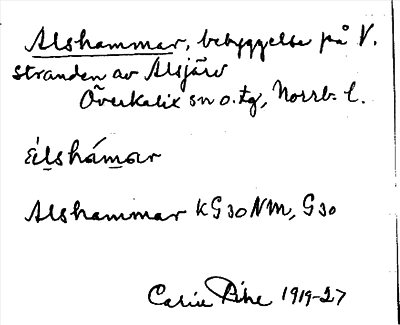 Alshammar, bebyggelse på V.
stranden av Alsjärv
Överkalix sn o. tg, Norrb. l.
Alshammar KG 30 NM, G 30
Carin Pihl 1919-27